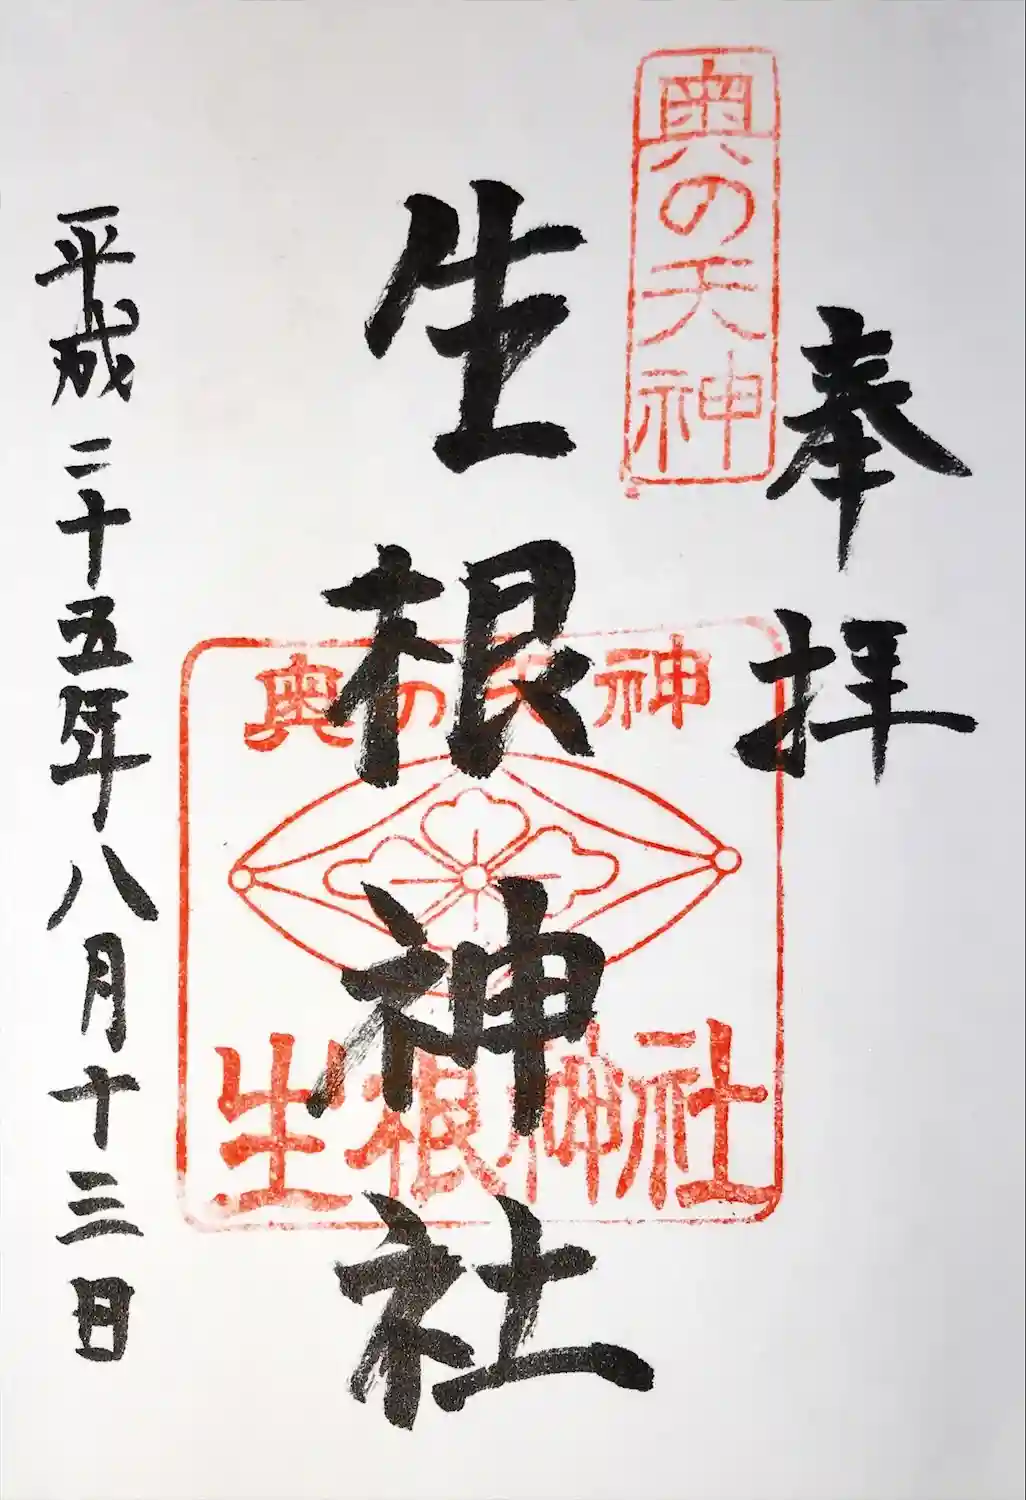 奉拝
奥の天神
生根神社
奥の天神
生根神社
平成二十五年八月十三日